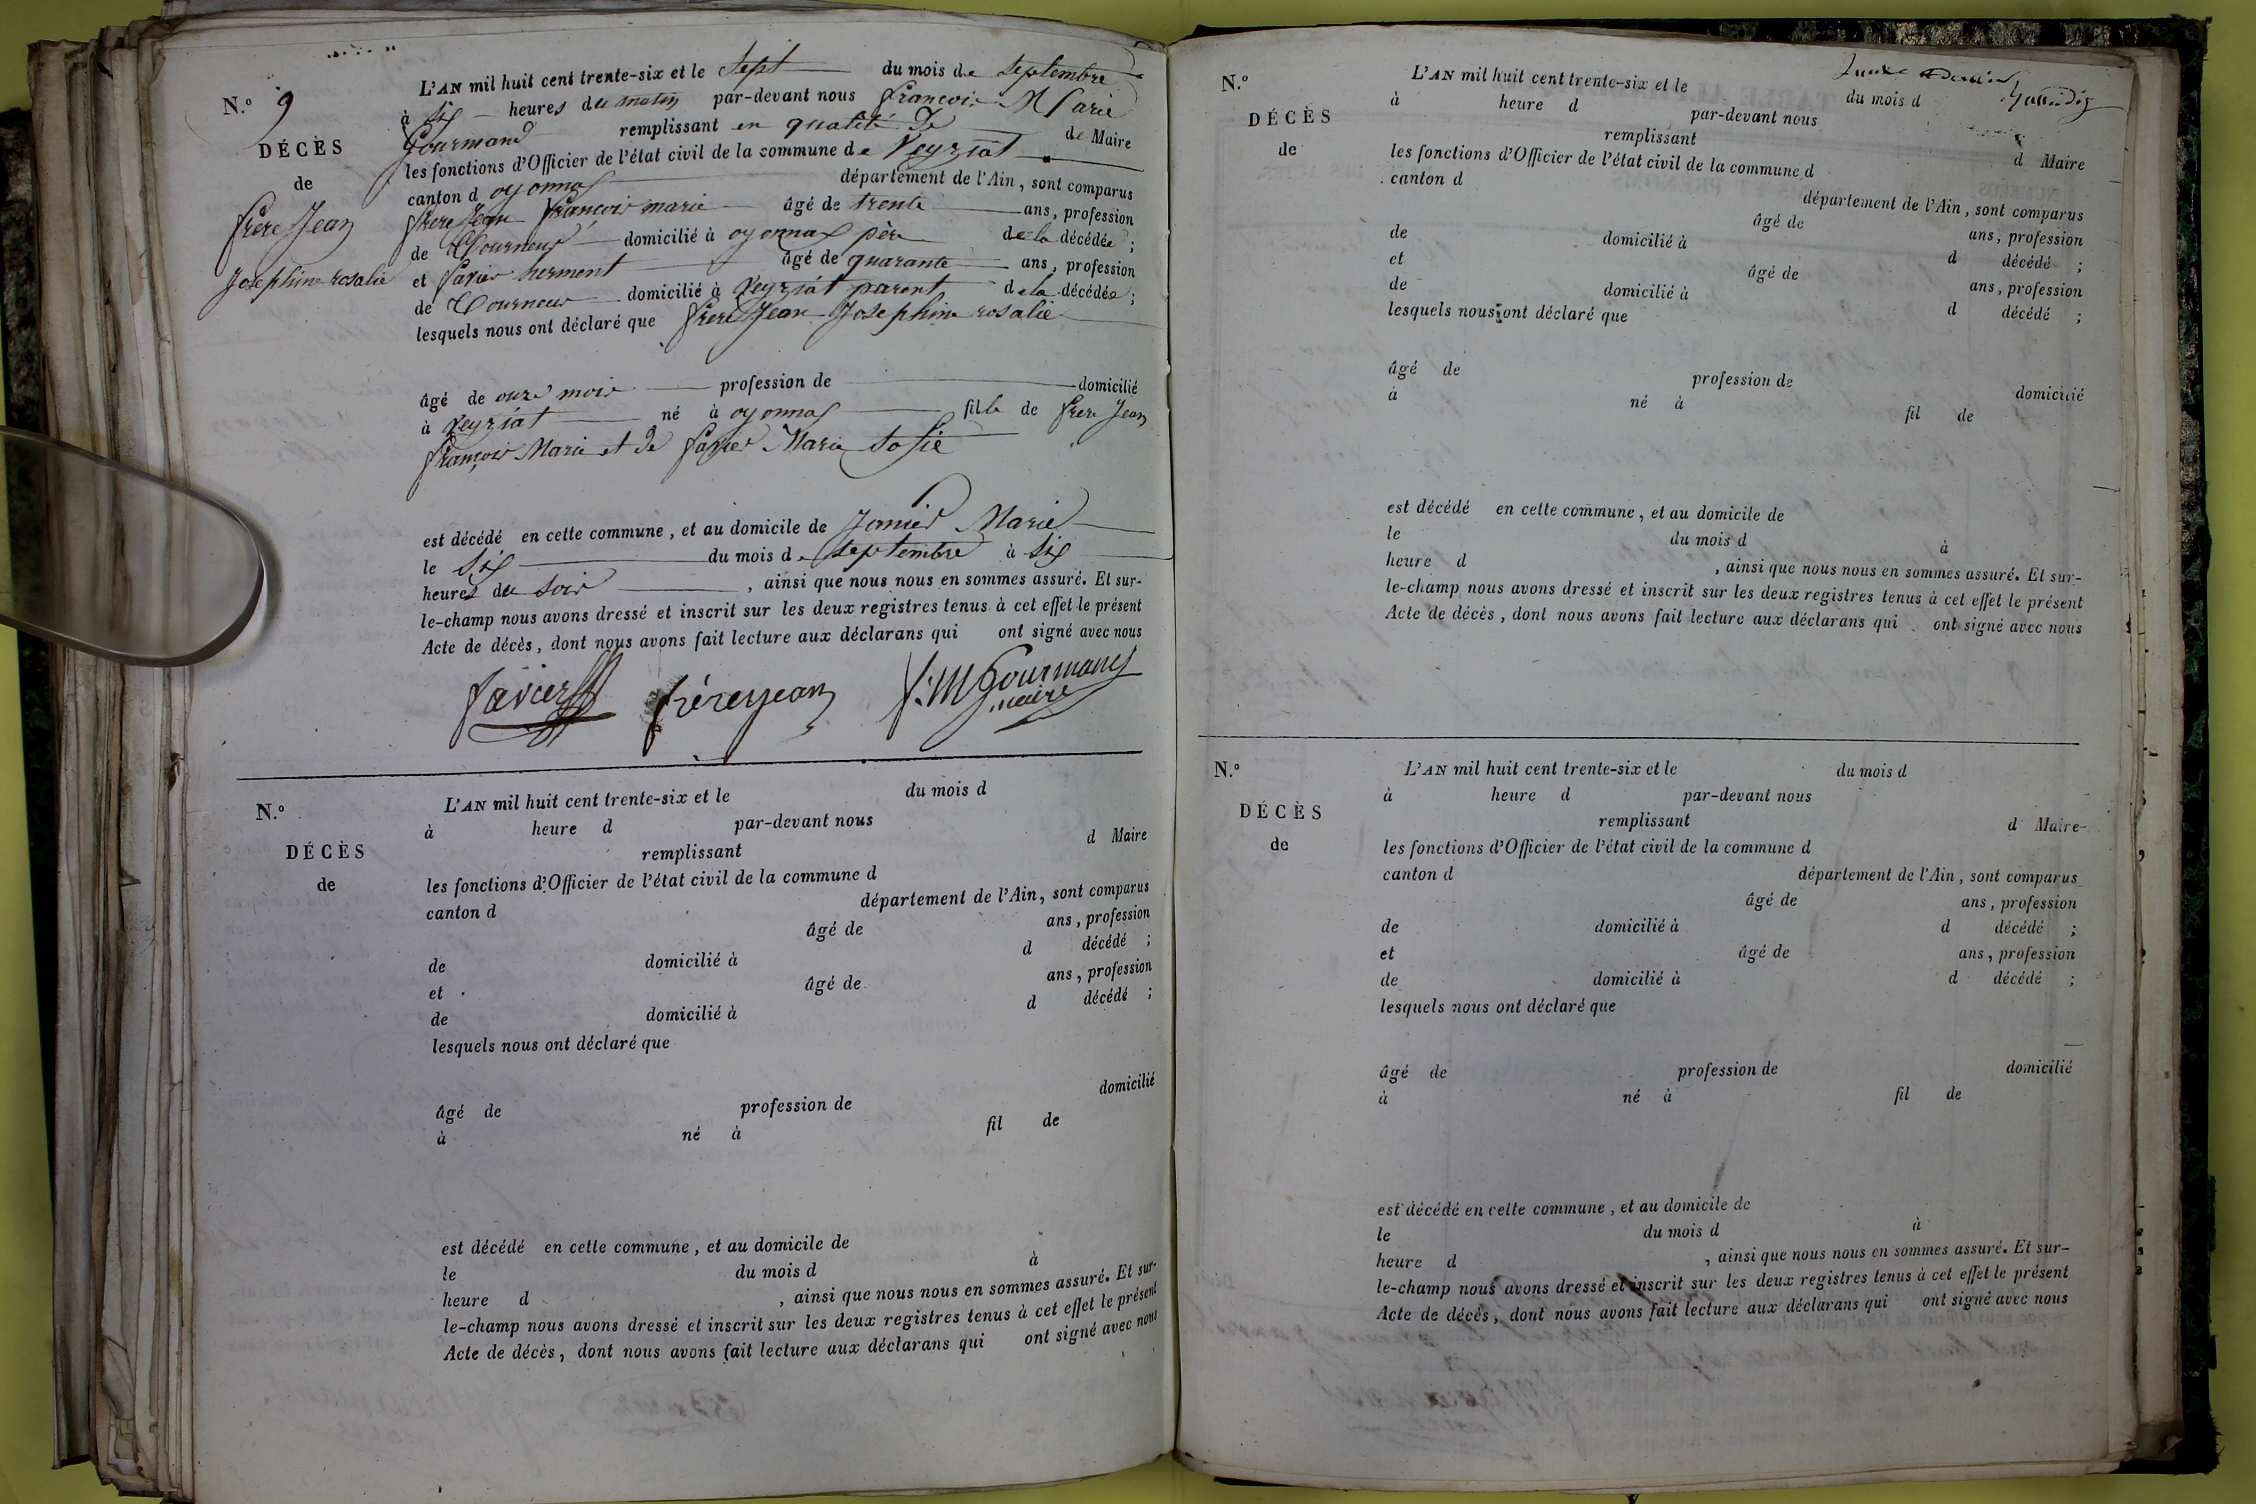 N.º 9
DÉCÈS
de
frere Jean
Josephine rosalie
L'AN mil huit cent trente-six et le sept du mois de septembre
à six heures du matin par-devant nous françois Marie
Gourmand remplissant en qualité de de Maire
les fonctions d'Officier de l'état civil de la commune de Veyziat
canton d oyonnax département de l'Ain, sont comparus
frere Jean françois marie âgé de trente ans, profession
de Tourneur domicilié à oyonnax père de la décédée ;
et favier herment âgé de quarante ans, profession
de Tourneur domicilié à Veyziat parent de la décédée ;
lesquels nous ont déclaré que frere Jean Josephine rosalie
âgé de onze mois profession de domicilié
à Veyziat né à oyonnax fille de frere Jean
françois Marie et de favier Marie Sofie
est décédé en cette commune, et au domicile de Marie
le six du mois de septembre à six
heures du soir , ainsi que nous nous en sommes assuré. Et sur-
le-champ nous avons dressé et inscrit sur les deux registres tenus à cet effet le présent
Acte de décès, dont nous avons fait lecture aux déclarans qui ont signé avec nous
favier frérejean f. M Gourmand
maire
N.º
DÉCÈS
de
L'AN mil huit cent trente-six et le du mois d
à heure d par-devant nous
remplissant d Maire
les fonctions d'Officier de l'état civil de la commune d
canton d département de l'Ain, sont comparus
âgé de ans, profession
de domicilié à d décédé ;
et âgé de ans, profession
de domicilié à d décédé ;
lesquels nous ont déclaré que
âgé de profession de domicilié
à né à fil de
est décédé en cette commune, et au domicile de
le du mois d à
heure d , ainsi que nous nous en sommes assuré. Et sur-
le-champ nous avons dressé et inscrit sur les deux registres tenus à cet effet le présent
Acte de décès, dont nous avons fait lecture aux déclarans qui ont signé avec nous
N.º
DÉCÈS
de
L'AN mil huit cent trente-six et le du mois d
à heure d par-devant nous
remplissant d Maire
les fonctions d'Officier de l'état civil de la commune d
canton d département de l'Ain, sont comparus
âgé de ans, profession
de domicilié à d décédé ;
et âgé de ans, profession
de domicilié à d décédé ;
lesquels nous ont déclaré que
âgé de profession de domicilié
à né à fil de
est décédé en cette commune, et au domicile de
le du mois d à
heure d , ainsi que nous nous en sommes assuré. Et sur-
le-champ nous avons dressé et inscrit sur les deux registres tenus à cet effet le présent
Acte de décès, dont nous avons fait lecture aux déclarans qui ont signé avec nous
N.º
DÉCÈS
de
L'AN mil huit cent trente-six et le du mois d
à heure d par-devant nous
remplissant d Maire
les fonctions d'Officier de l'état civil de la commune d
canton d département de l'Ain, sont comparus
âgé de ans, profession
de domicilié à d décédé ;
et âgé de ans, profession
de domicilié à d décédé ;
lesquels nous ont déclaré que
âgé de profession de domicilié
à né à fil de
est décédé en cette commune, et au domicile de
le du mois d à
heure d , ainsi que nous nous en sommes assuré. Et sur-
le-champ nous avons dressé et inscrit sur les deux registres tenus à cet effet le présent
Acte de décès, dont nous avons fait lecture aux déclarans qui ont signé avec nous